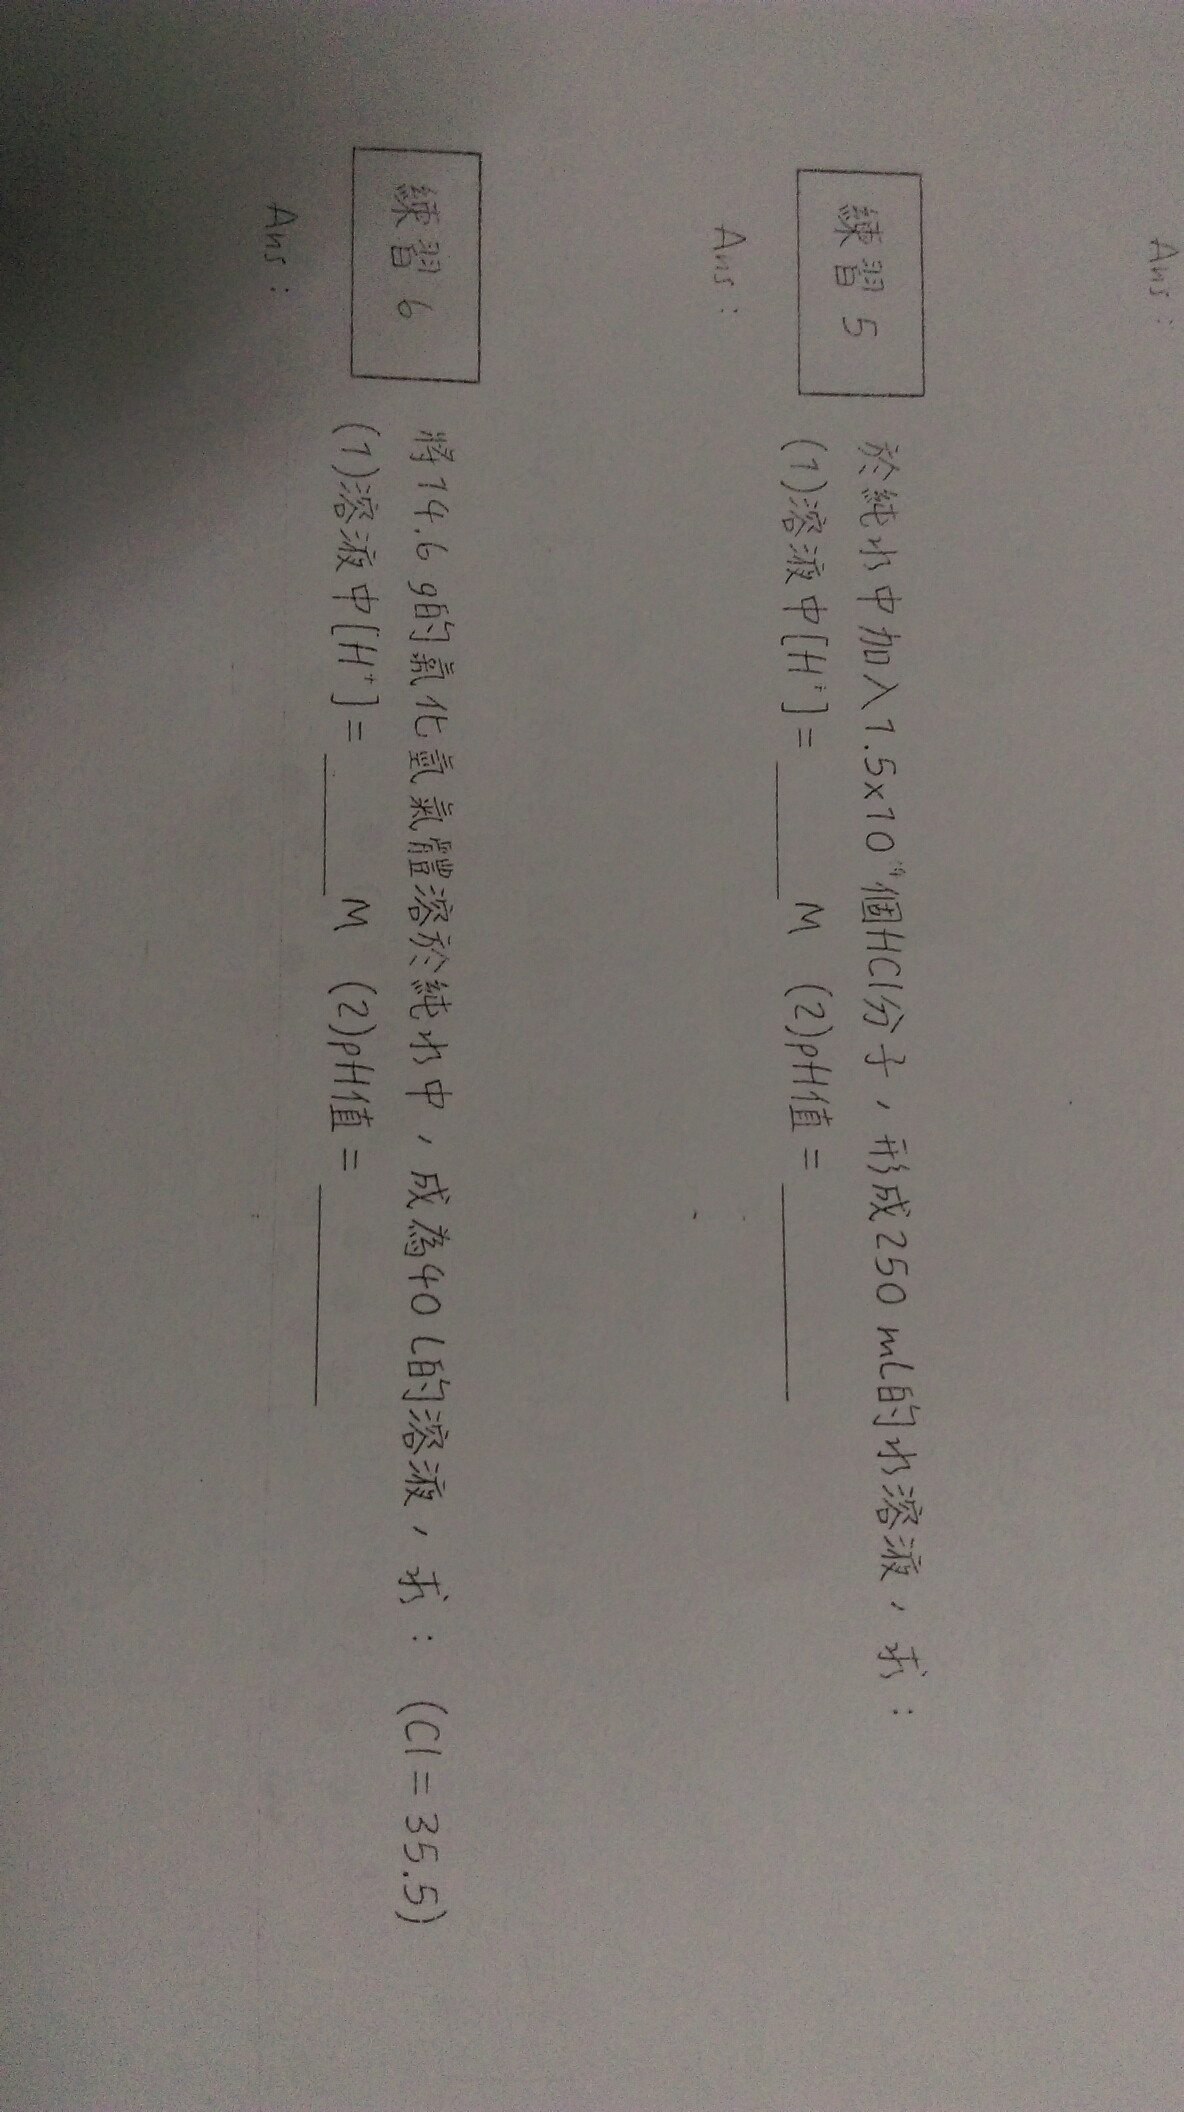 Ans：
練習 5 於純水中加入1.5x10¹⁹個HCl分子，形成250 mL的水溶液，求：
(1)溶液中[H⁺]=______M (2)pH值=______
Ans：
練習 6 將14.6 g的氯化氫氣體溶於純水中，成為40 L的溶液，求： (Cl=35.5)
(1)溶液中[H⁺]=______M (2)pH值=______
Ans：